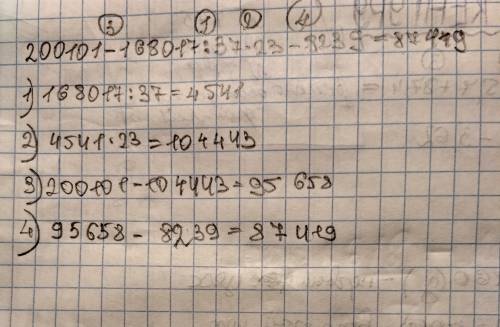 3 1 2 4
200101-168017:37·23-8239=87419
1) 168017:37=4541
2) 4541·23=104443
3) 200101-104443=95 658
4) 95658-8239=87419